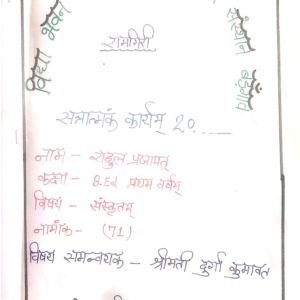 विद्या भवन
संस्थान बड़गांव
रामगिरी
सत्रात्मकं कार्यम् 20.....
नाम - राहुल प्रजापत्
कक्षा - B.Ed प्रथम वर्षम्
विषय - संस्कृतम्
नामांक - (71)
विषय समन्वयक - श्रीमती दुर्गा कुमावत